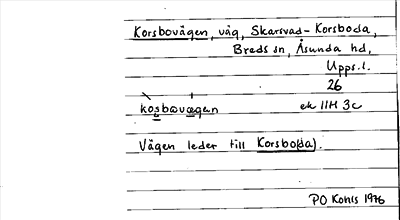 Korsbovägen, väg, Skarsvad-Korsboda,
Breds sn, Åsunda hd,
Upps.l.
26
kosbovægen ek 11H 3c
Vägen leder till Korsbo(da).
PO Kohls 1976